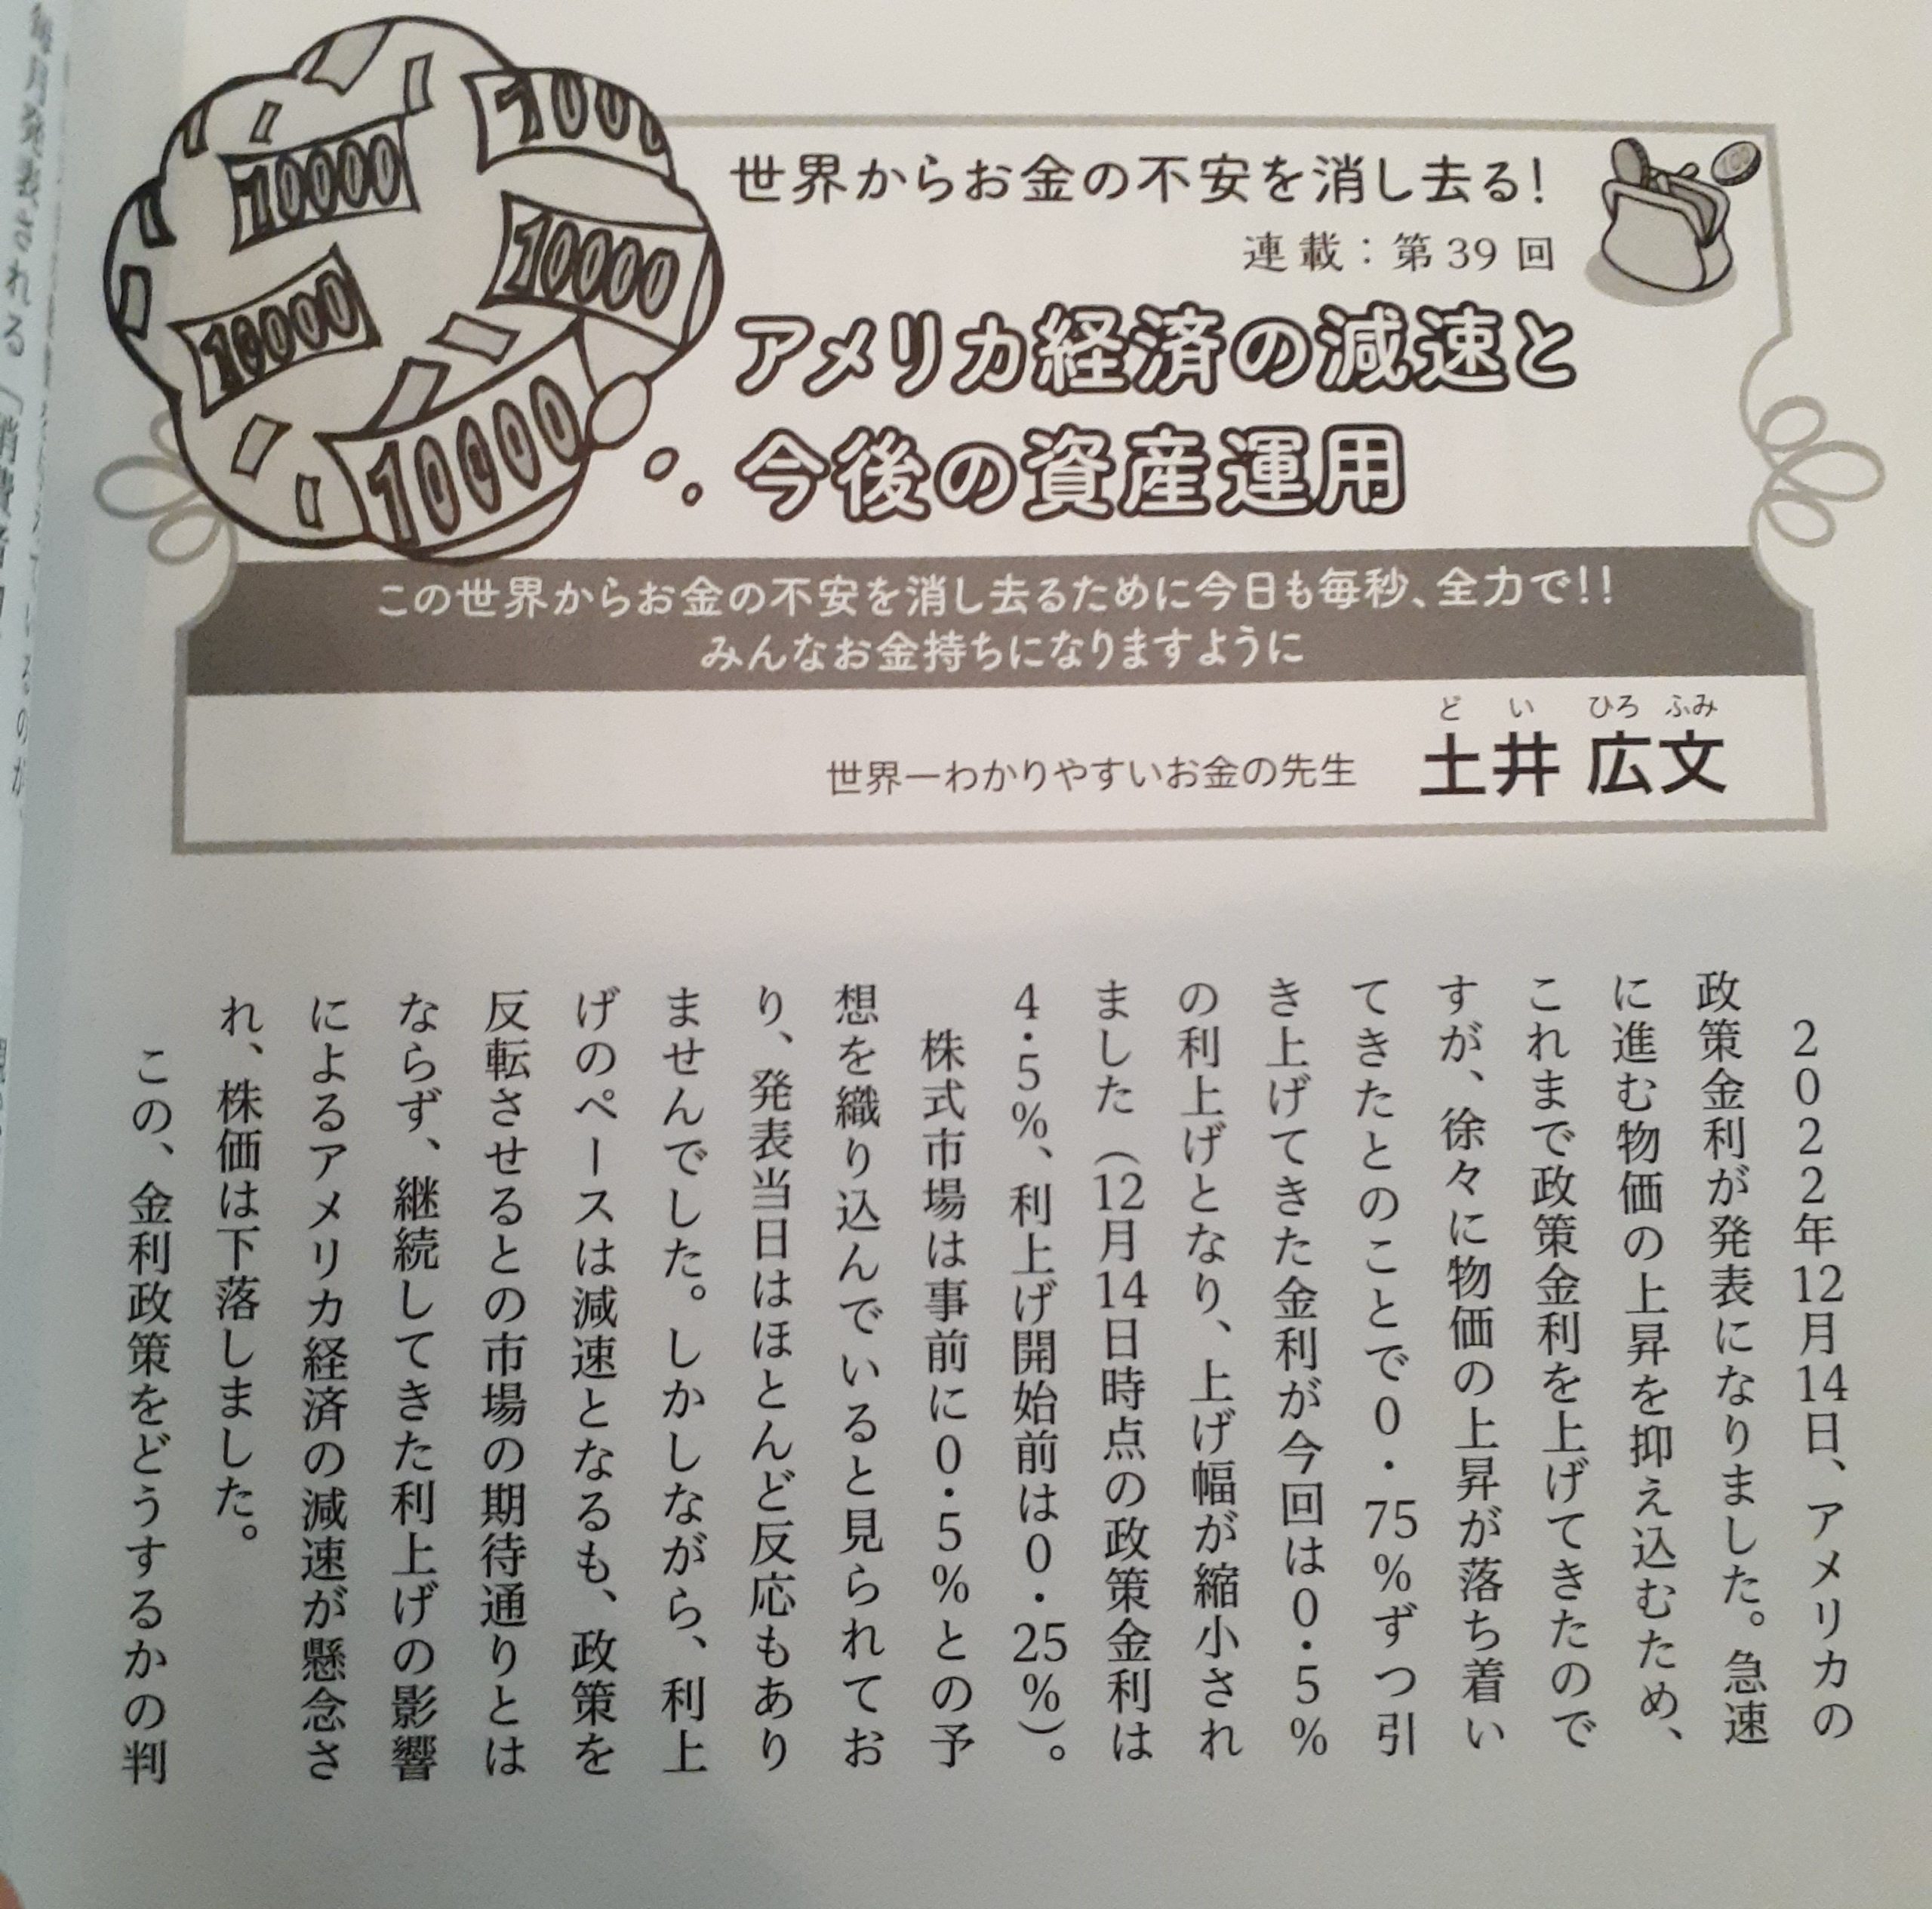 世界からお金の不安を消し去る!
連載:第39回
アメリカ経済の減速と
今後の資産運用
この世界からお金の不安を消し去るために今日も毎秒、全力で!!
みんなお金持ちになりますように
世界一わかりやすいお金の先生
どい ひろふみ
土井 広文
10000
10000
10000
10000
2022年12月14日、アメリカの
政策金利が発表になりました。急速
に進む物価の上昇を抑え込むため、
これまで政策金利を上げてきたので
すが、徐々に物価の上昇が落ち着い
てきたとのことで0・75%ずつ引
き上げてきた金利が今回は0・5%
の利上げとなり、上げ幅が縮小され
ました(12月14日時点の政策金利は
4・5%、利上げ開始前は0・25%)。
株式市場は事前に0・5%との予
想を織り込んでいると見られてお
り、発表当日はほとんど反応もあり
ませんでした。しかしながら、利上
げのペースは減速となるも、政策を
反転させるとの市場の期待通りとは
ならず、継続してきた利上げの影響
によるアメリカ経済の減速が懸念さ
れ、株価は下落しました。
この、金利政策をどうするかの判
毎月発表される「消費者